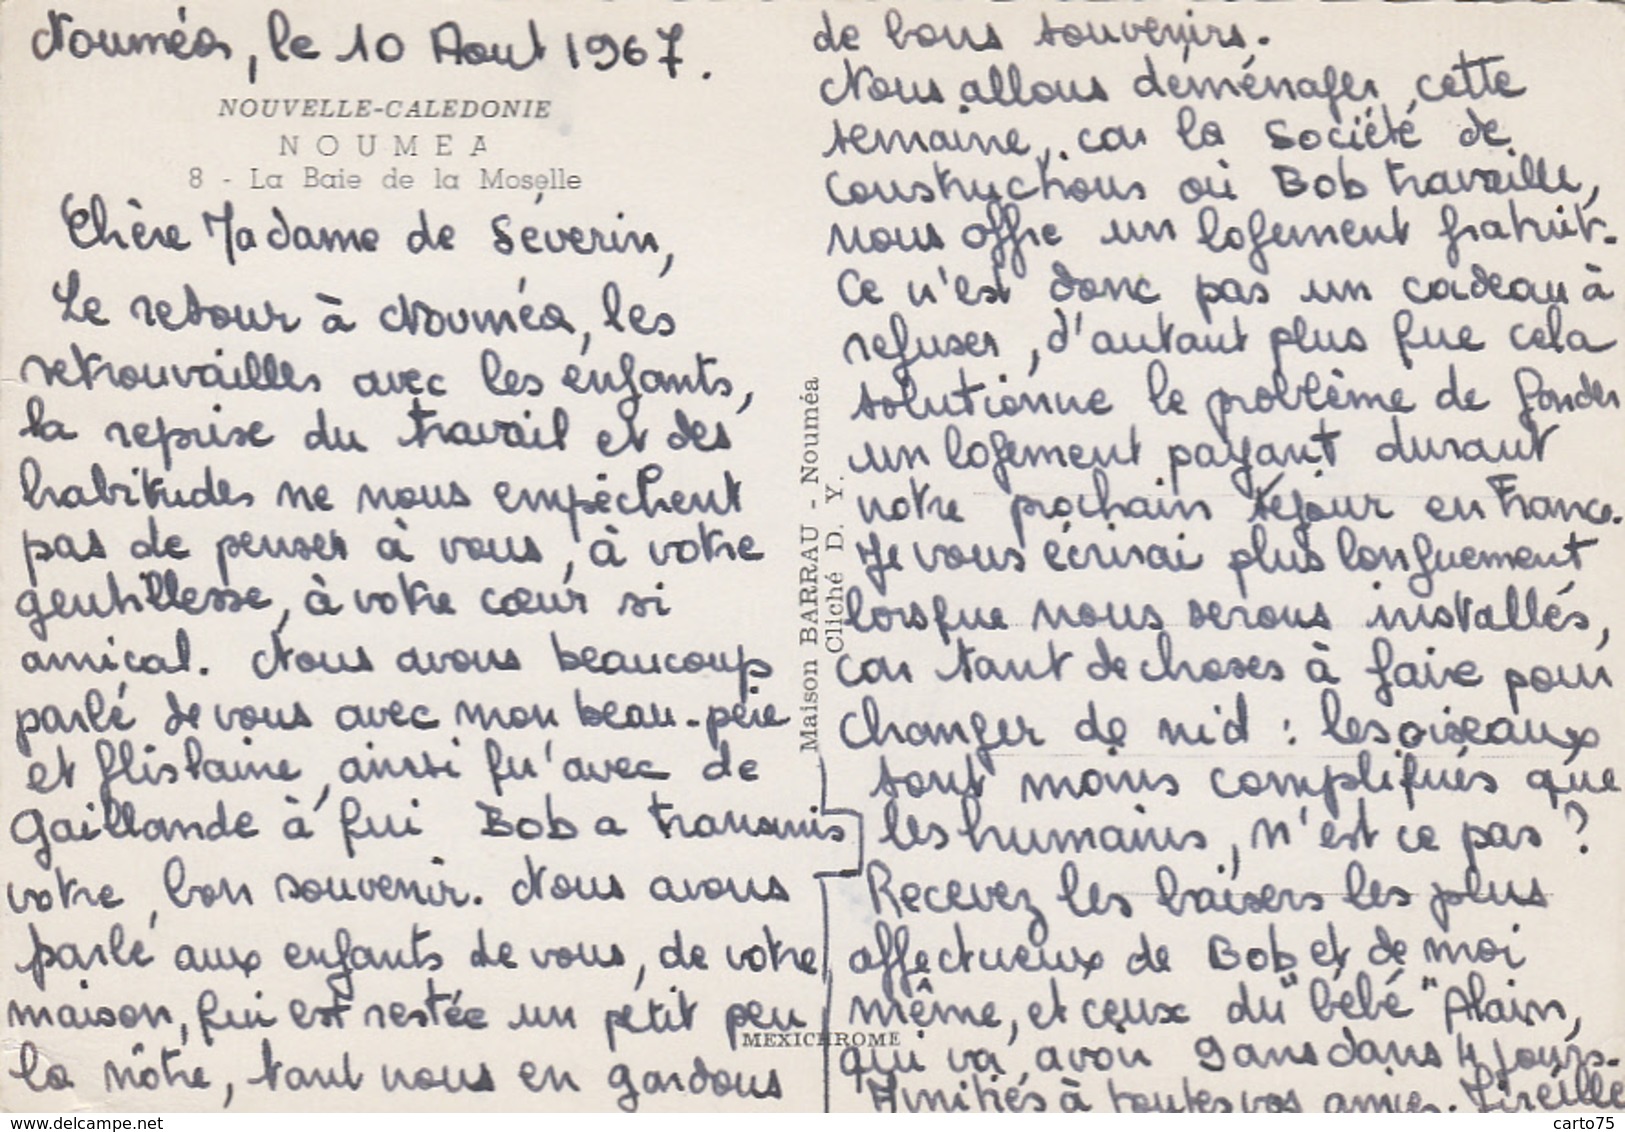 Nouméa, le 10 Aout 1967.
NOUVELLE-CALEDONIE
NOUMEA
8 - La Baie de la Moselle
Chère Madame de Séverin,
Le retour à Nouméa, les
retrouvailles avec les enfants,
la reprise du travail et des
habitudes ne nous empêchent
pas de penser à vous, à votre
gentillesse, à votre cœur si
amical. Nous avons beaucoup
parlé de vous avec mon beau-père
et Ghislaine, ainsi qu'avec de
Gaillande à qui Bob a transmis
votre bon souvenir. Nous avons
parlé aux enfants de vous, de votre
maison, qui est restée un petit peu
la nôtre, tant nous en gardons
Maison BARRAU - Nouméa
Cliché D. Y.
MEXICHROME
de bons souvenirs.
Nous allons déménager cette
semaine, car la Société de
Constructions où Bob travaille,
nous offre un logement gratuit.
Ce n'est donc pas un cadeau à
refuser, d'autant plus que cela
solutionne le problème de garder
un logement payant durant
notre prochain séjour en France.
Je vous écrirai plus longuement
lorsque nous serons installés,
car tant de choses à faire pour
changer de nid : les oiseaux
sont moins compliqués que
les humains, n'est ce pas ?
Recevez les baisers les plus
affectueux de Bob et de moi
même, et ceux du "bébé" Alain,
qui va avoir 9 ans dans 4 jours.
Amitiés à toutes vos amies. Mireille
carto75